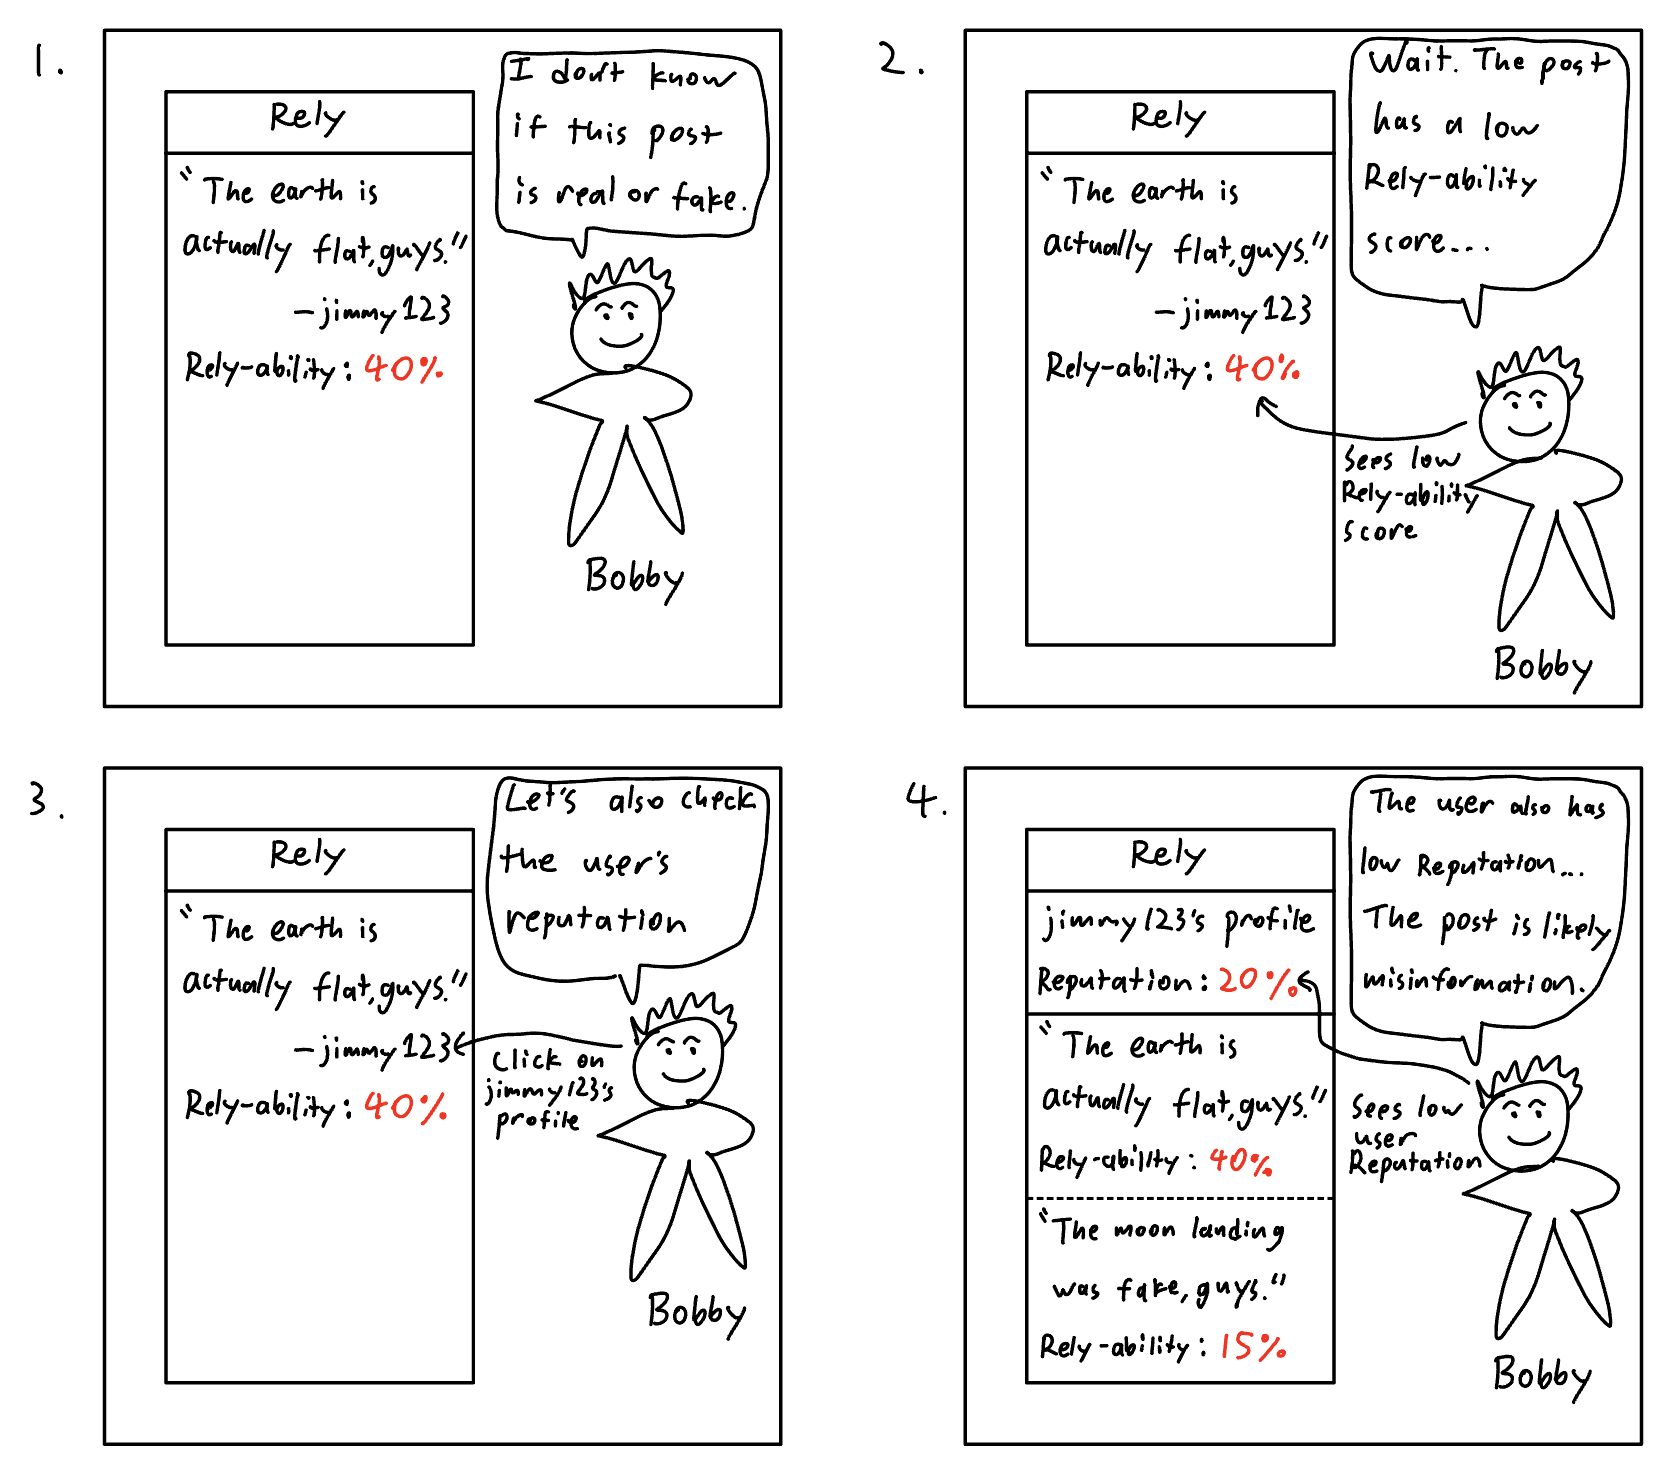 1.
Rely
"The earth is
actually flat, guys."
-jimmy123
Rely-ability: 40%
I don't know
if this post
is real or fake.
Bobby
2.
Rely
"The earth is
actually flat, guys."
-jimmy123
Rely-ability: 40%
Wait. The post
has a low
Rely-ability
score...
Sees low
Rely-ability
score
Bobby
3.
Rely
"The earth is
actually flat, guys."
-jimmy123
Rely-ability: 40%
Let's also check
the user's
reputation
Click on
jimmy123's
profile
Bobby
4.
Rely
jimmy123's profile
Reputation: 20%
"The earth is
actually flat, guys."
Rely-ability: 40%
"The moon landing
was fake, guys."
Rely-ability: 15%
The user also has
low Reputation...
The post is likely
misinformation.
Sees low
user
Reputation
Bobby